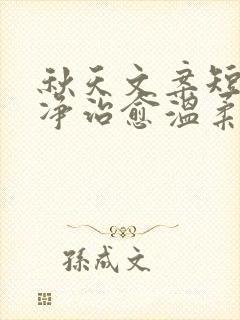 秋天文案短
净治愈温柔
孫成文